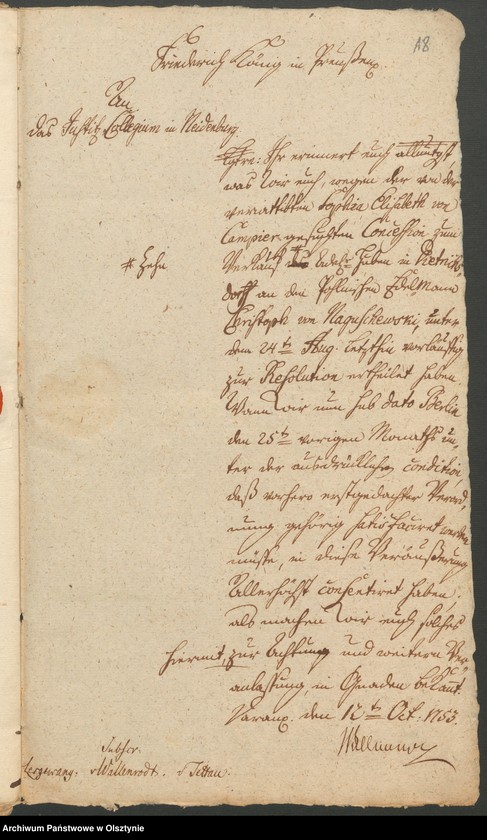 18
Friederich König in Preußen
An
das Justitz Collegium in Neidenburg
Ihr erinnert euch
was Wir euch, wegen der von der
verwittibten Sophia Elisabeth von
Campier gesuchten Concession zum
Verkauf Huben in Pietrichs
* Zehn
dorff an den Pohlnischen Edelmann
Christoph von Naguschewski, unter
dem 24ten Aug. letzthin vorläuffig
zur Resolution ertheilet haben
Wann Wir nun sub dato Berlin
den 25ten vorigen Monaths un-
ter der ausdrücklichen condition,
daß vorhero erstgedachter Verord
nung gehörig satisfaciret werden
müsse, in diese Veräußerung
Allerhöchst consentiret haben;
als machen Wir euch solches
hiermit, zur Achtung und weitern Ver
anlassung, in Gnaden bekannt.
den 12ten Oct. 1753.
Subscr.
vWallenrodt. v Tettau.
Archiwum Państwowe w Olsztynie